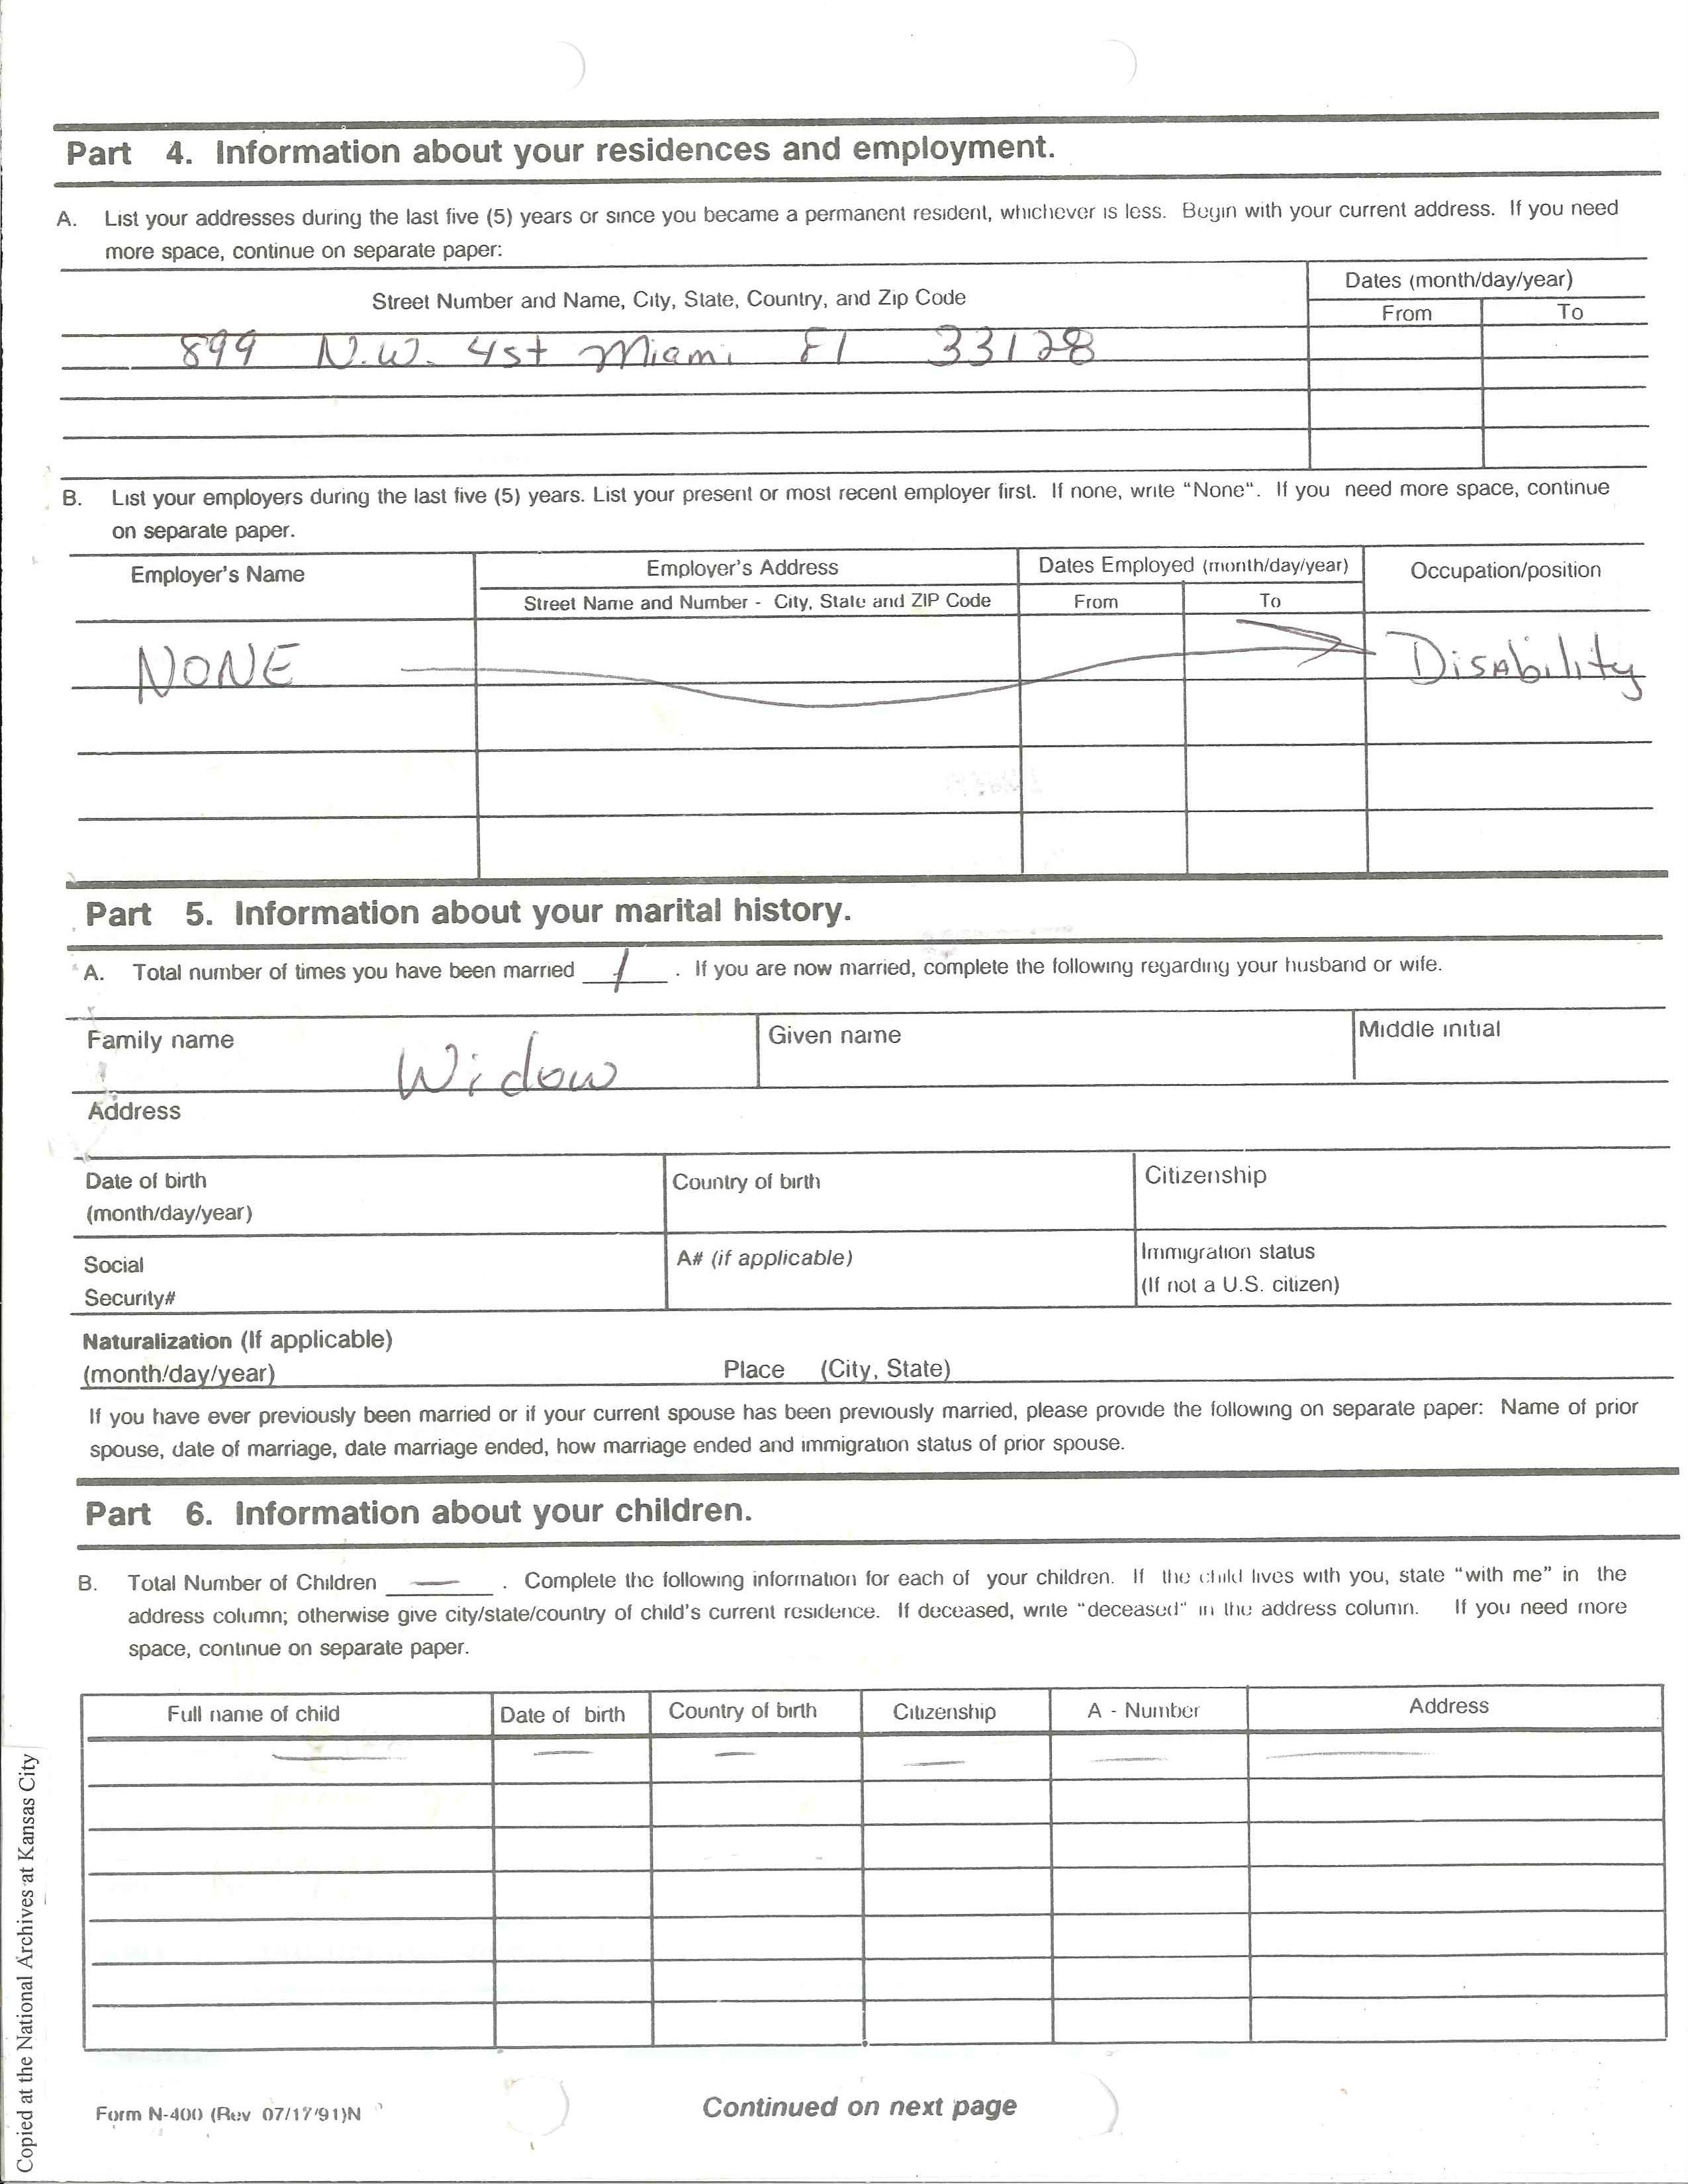 Part 4. Information about your residences and employment.
A. List your addresses during the last five (5) years or since you became a permanent resident, whichever is less. Begin with your current address. If you need
more space, continue on separate paper:
Street Number and Name, City, State, Country, and Zip Code
Dates (month/day/year)
From To
899 N.W. 4st Miami Fl 33128
B. List your employers during the last five (5) years. List your present or most recent employer first. If none, write "None". If you need more space, continue
on separate paper.
Employer's Name Employer's Address Dates Employed (month/day/year) Occupation/position
Street Name and Number - City, State and ZIP Code From To
NONE Disability
Part 5. Information about your marital history.
A. Total number of times you have been married 1 . If you are now married, complete the following regarding your husband or wife.
Family name Widow Given name Middle initial
Address
Date of birth Country of birth Citizenship
(month/day/year)
Social A# (if applicable) Immigration status
Security# (If not a U.S. citizen)
Naturalization (If applicable)
(month/day/year) Place (City, State)
If you have ever previously been married or if your current spouse has been previously married, please provide the following on separate paper: Name of prior
spouse, date of marriage, date marriage ended, how marriage ended and immigration status of prior spouse.
Part 6. Information about your children.
B. Total Number of Children — . Complete the following information for each of your children. If the child lives with you, state "with me" in the
address column; otherwise give city/state/country of child's current residence. If deceased, write "deceased" in the address column. If you need more
space, continue on separate paper.
Full name of child Date of birth Country of birth Citizenship A - Number Address
— — — — — —
Form N-400 (Rev 07/17/91)N Continued on next page
Copied at the National Archives at Kansas City